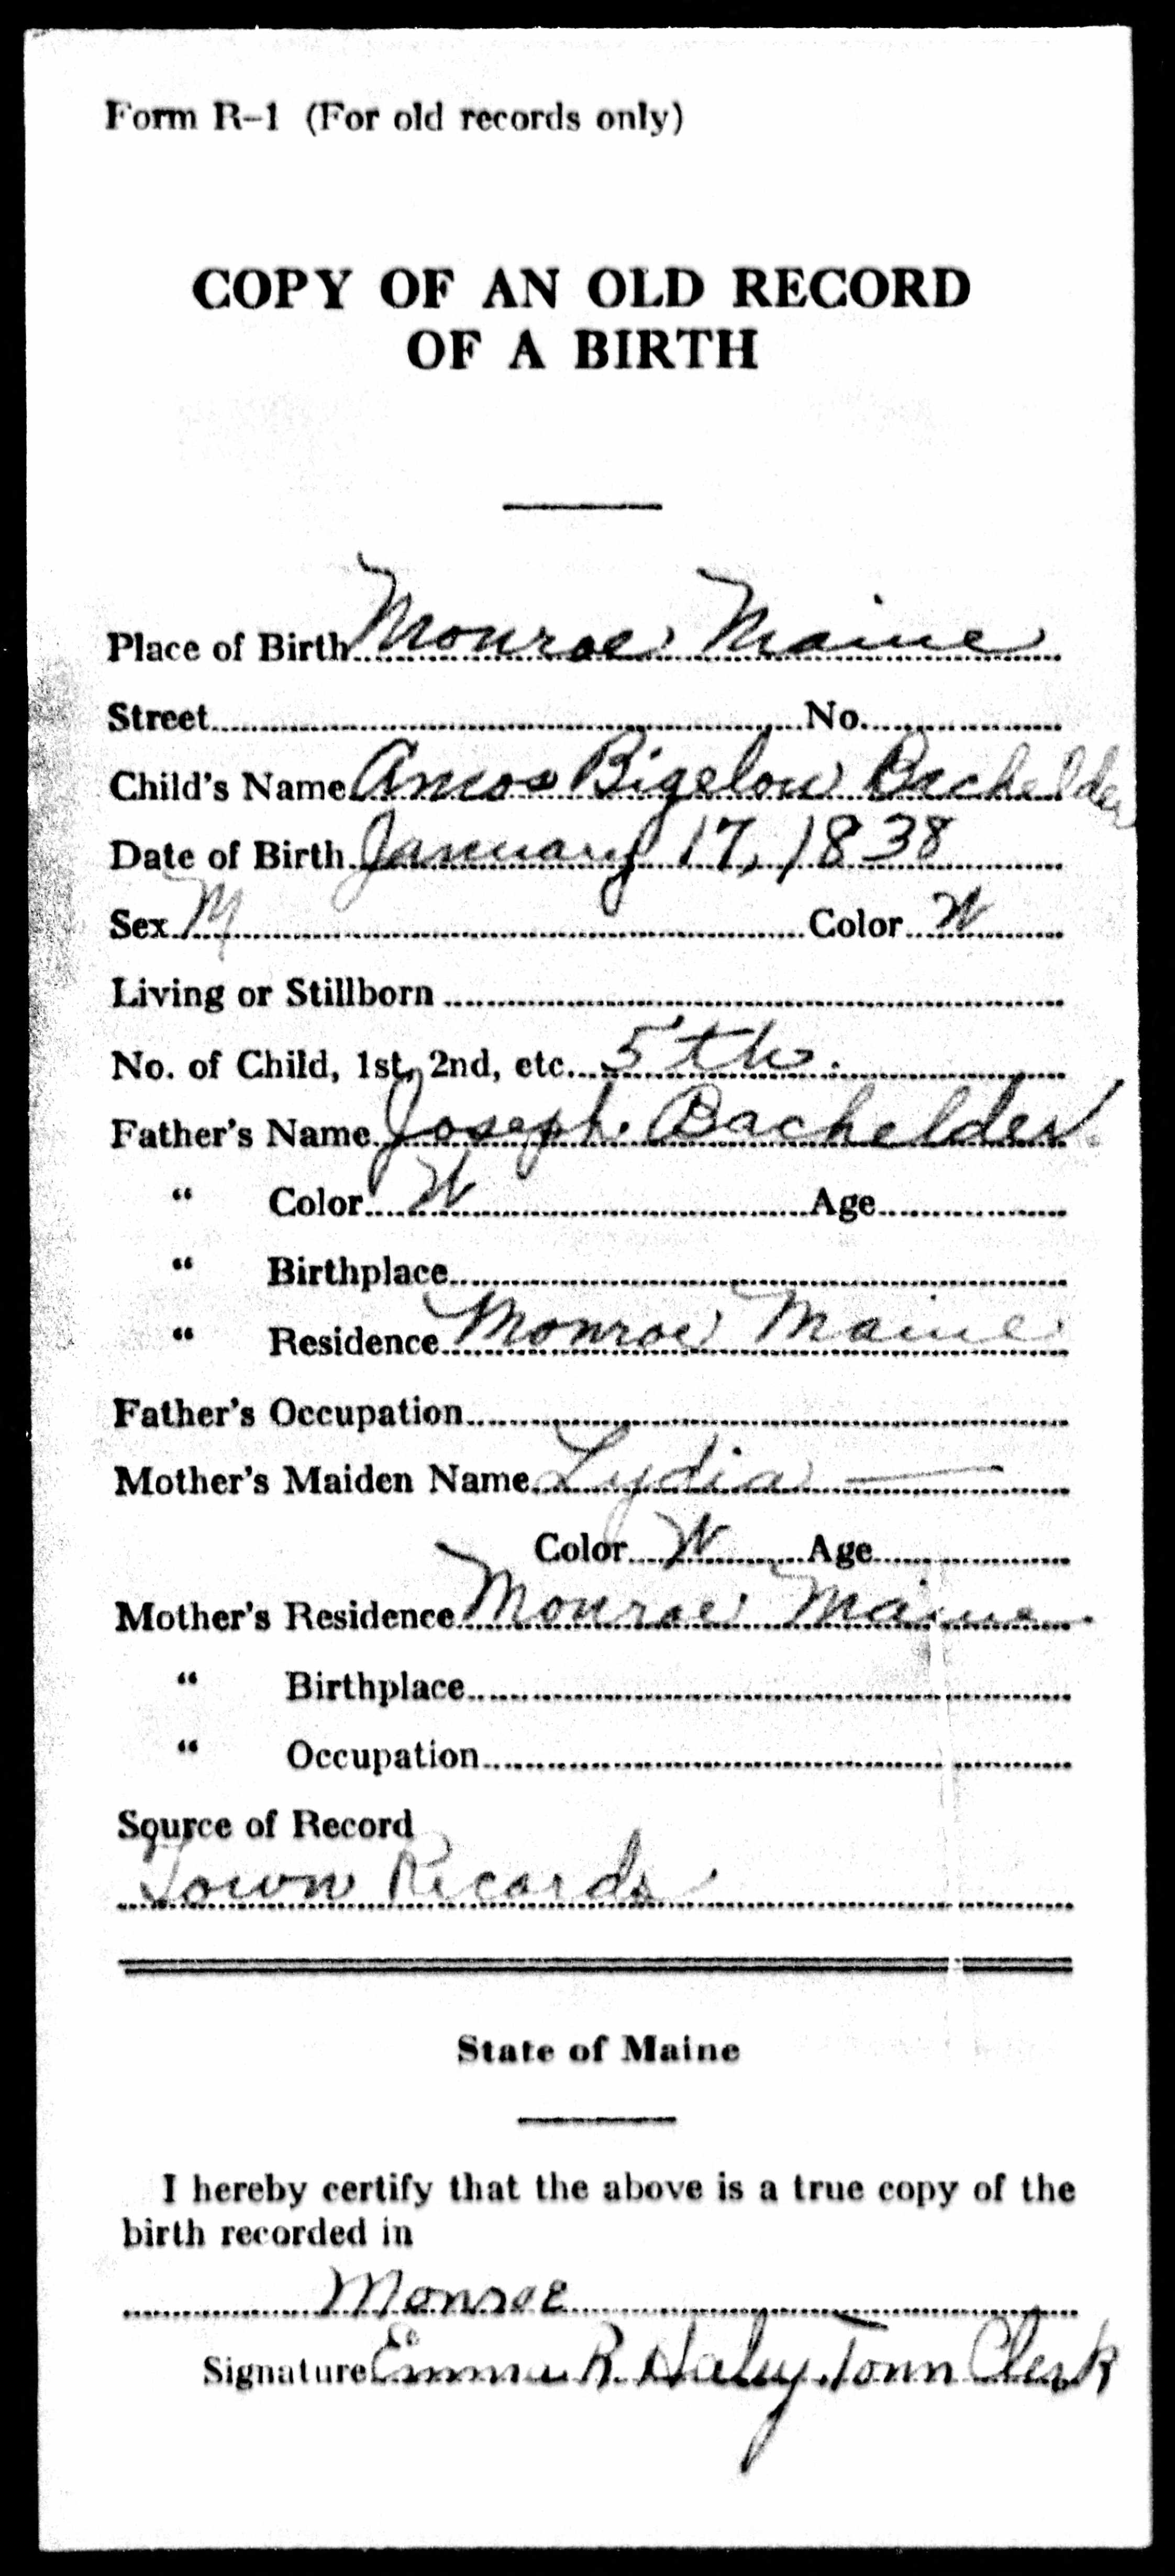 Form R-1 (For old records only)
COPY OF AN OLD RECORD
OF A BIRTH
Place of Birth Monroe Maine
Street No.
Child's Name Amos Bigelow Bachelder
Date of Birth January 17, 1838
Sex M Color W
Living or Stillborn
No. of Child, 1st, 2nd, etc. 5th.
Father's Name Joseph Bachelder.
" Color W Age
" Birthplace
" Residence Monroe Maine
Father's Occupation
Mother's Maiden Name Lydia —
Color W Age
Mother's Residence Monroe Maine
" Birthplace
" Occupation
Source of Record
Town Records
State of Maine
I hereby certify that the above is a true copy of the
birth recorded in
Monroe
Signature Emma R. Haley, Town Clerk